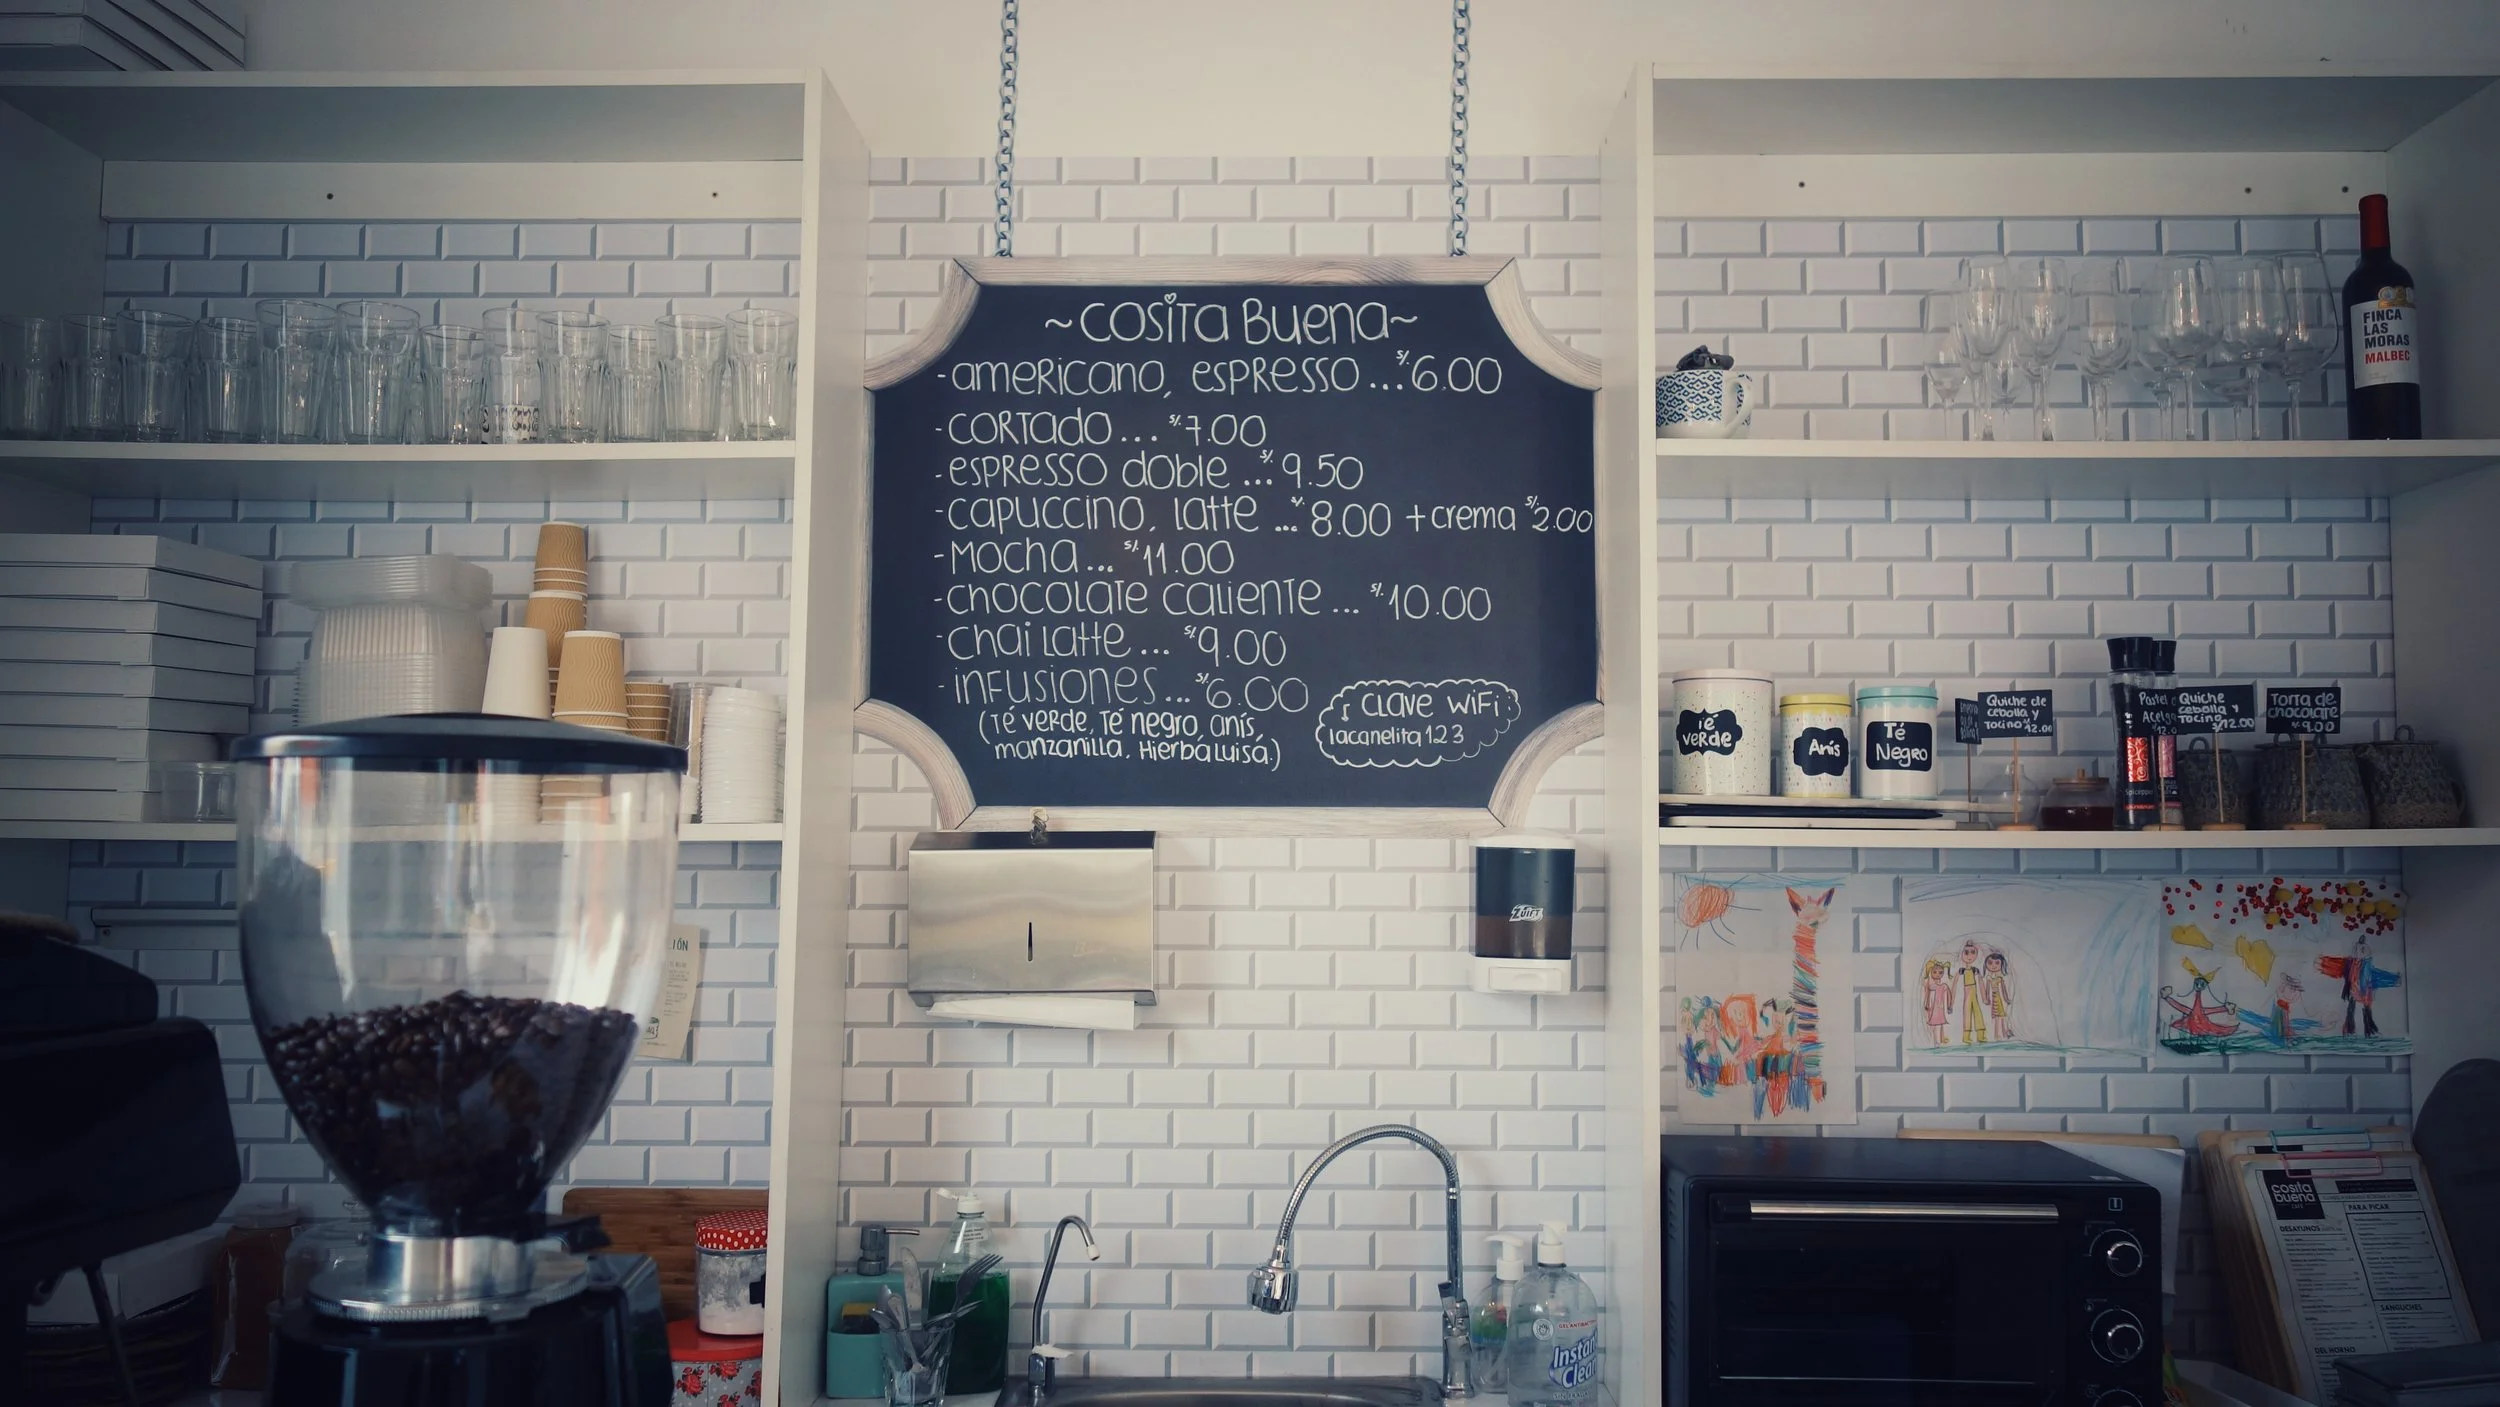 ~Cosita Buena~
-americano, espresso ... S/. 6.00
-cortado ... S/. 7.00
-espresso doble ... S/. 9.50
-capuccino, latte ... S/. 8.00 + crema S/. 2.00
-Mocha ... S/. 11.00
-chocolate caliente ... S/. 10.00
-chai latte ... S/. 9.00
-infusiones ... S/. 6.00
(Té verde, Té negro, anís,
manzanilla, Hierba Luisa.)
CLAVE WiFi
lacanelita123
FINCA
LAS
MORAS
MALBEC
Té
verde
Anís
Té
Negro
Quiche de
cebolla y
Tocino S/. 12.00
Pastel
Acelga
Quiche
cebolla y
Tocino
S/. 12.00
Torta de
chocolate
S/. 9.00
IÓN
ZUIFT
Instan
Clean
cosita
buena
PARA PICAR
DESAYUNOS
SANGUCHES
DEL HORNO